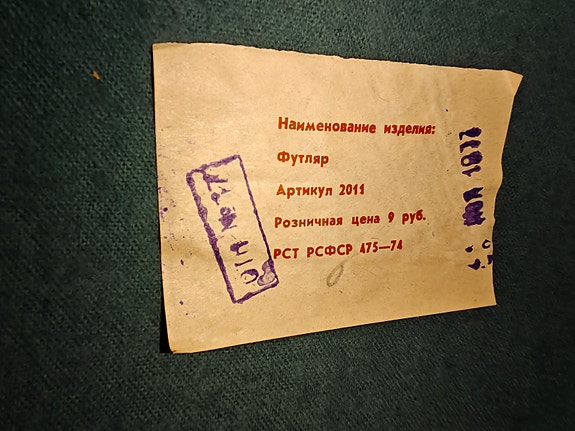 Наименование изделия:
Футляр
Артикул 2011
Розничная цена 9 руб.
РСТ РСФСР 475—74